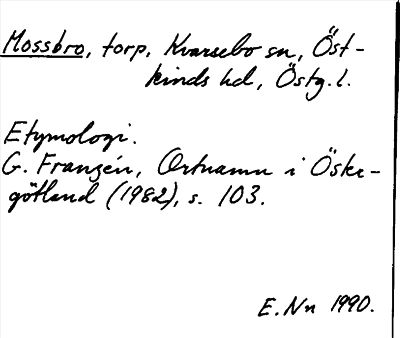 Mossbro, torp, Kvarsebo sn, Öst-
kinds hd, Östg. l.
Etymologi.
G. Franzén, Ortnamn i Öster-
götland (1982), s. 103.
E. Nn 1990.